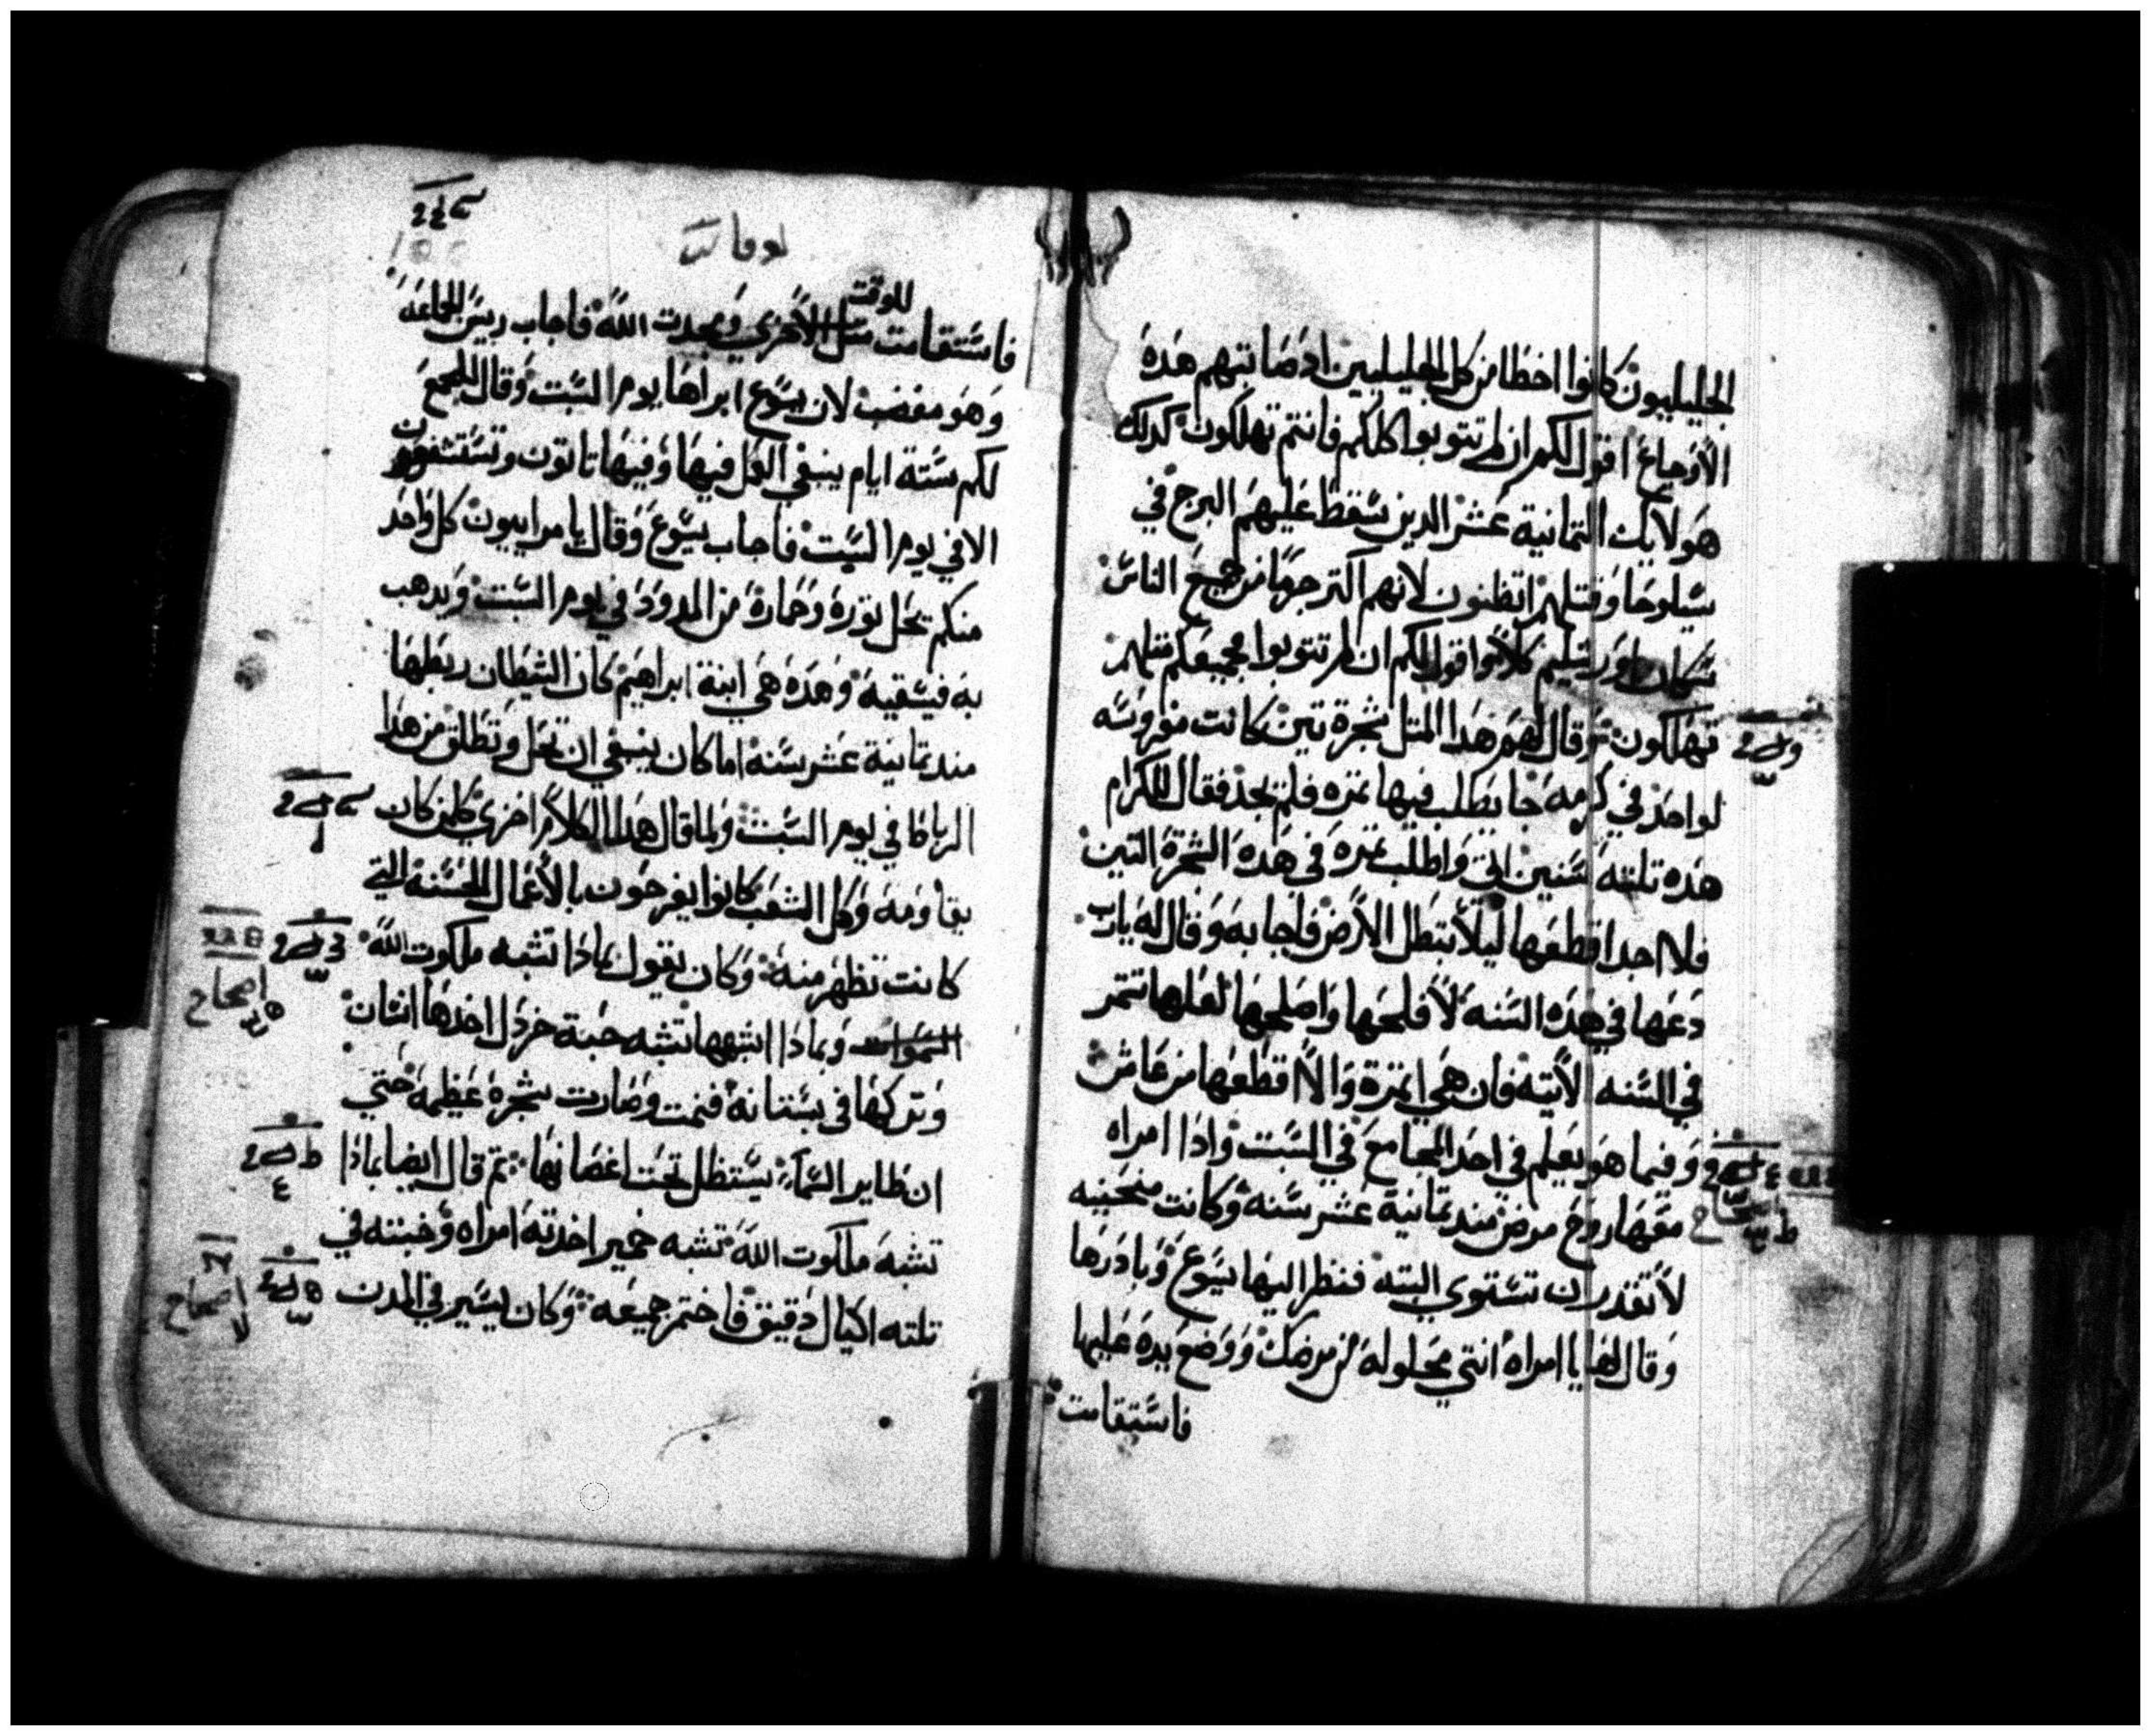 الجليليون كانوا اخطا من كل الجليليين اذ صابتهم هذه
الاوجاع اقول لكم ان لم تتوبوا كلكم فانتم تهلكون كدلك
هولايك التمانية عشر الدين سقط عليهم البرج في
سيلوحا وقتلهم اتظنون لانهم اكتر جرما من جميع الناس
سكان اورشليم كلا اقول لكم ان لم تتوبوا جميعكم متلهم
تهلكون وقال لهم هدا المتل شجرة تين كانت مغروسه
لواحد في كرمه جا يطلب فيها تمره فلم يجد فقال للكرام
هده تلتة سنين اتي واطلب تمره في هده الشجرة التين
فلا اجد اقطعها ليلا تبطل الارض فاجابه وقال له يارب
دعها في هده السنه لافلحها واصلحها لعلها تتمر
في السنه الاتيه فان هي اتمرة والا اقطعها
وفيما هو يعلم في احد المجامع في السبت وادا امراه
معها روح مرض مند تمانية عشر سنه وكانت منحنيه
لا تقدر ان تستوي البته فنظر اليها يسوع وبادرها
وقال لها يا امراه انتي محلوله من مرضك ووضع يده عليها
فاستقامت
لوقا
للوقت
فاستقامت متل الاخري ومجدت الله فاجاب ريس الجماعه
وهو مغضب لان يسوع ابراها يوم السبت وقال للجمع
لكم ستة ايام ينبغي العمل فيها وفيها تاتون وتستشفون
لا في يوم السبت فاجاب يسوع وقال يا مراييون كل واحد
منكم يحل توره وحماره من المدود في يوم السبت ويدهب
به فيسقيه وهده هي ابنة ابراهيم كان الشيطان ربطها
مند تمانية عشر سنه اما كان ينبغي ان تحل وتطلق من هدا
الرباط في يوم السبت ولما قال هدا الكلام اخزي كلمن كان
يقاومه وكل الشعب كانوا يفرحون بالاعمال الحسنه التي
كانت تظهر منه وكان يقول بمادا تشبه ملكوت الله
السموات وبمادا اشبهها تشبه حبة خردل اخدها انسان
وتركها في بستانه فنمت وصارت شجره عظيمه حتي
ان طاير السما يستظل تحت اغصانها تم قال ايضا بمادا
تشبه ملكوت الله تشبه خمير اخدته امراه وخبته في
تلته اكيال دقيق فاختمر جميعه وكان يسير في المدن
اصحاح
اصحاح